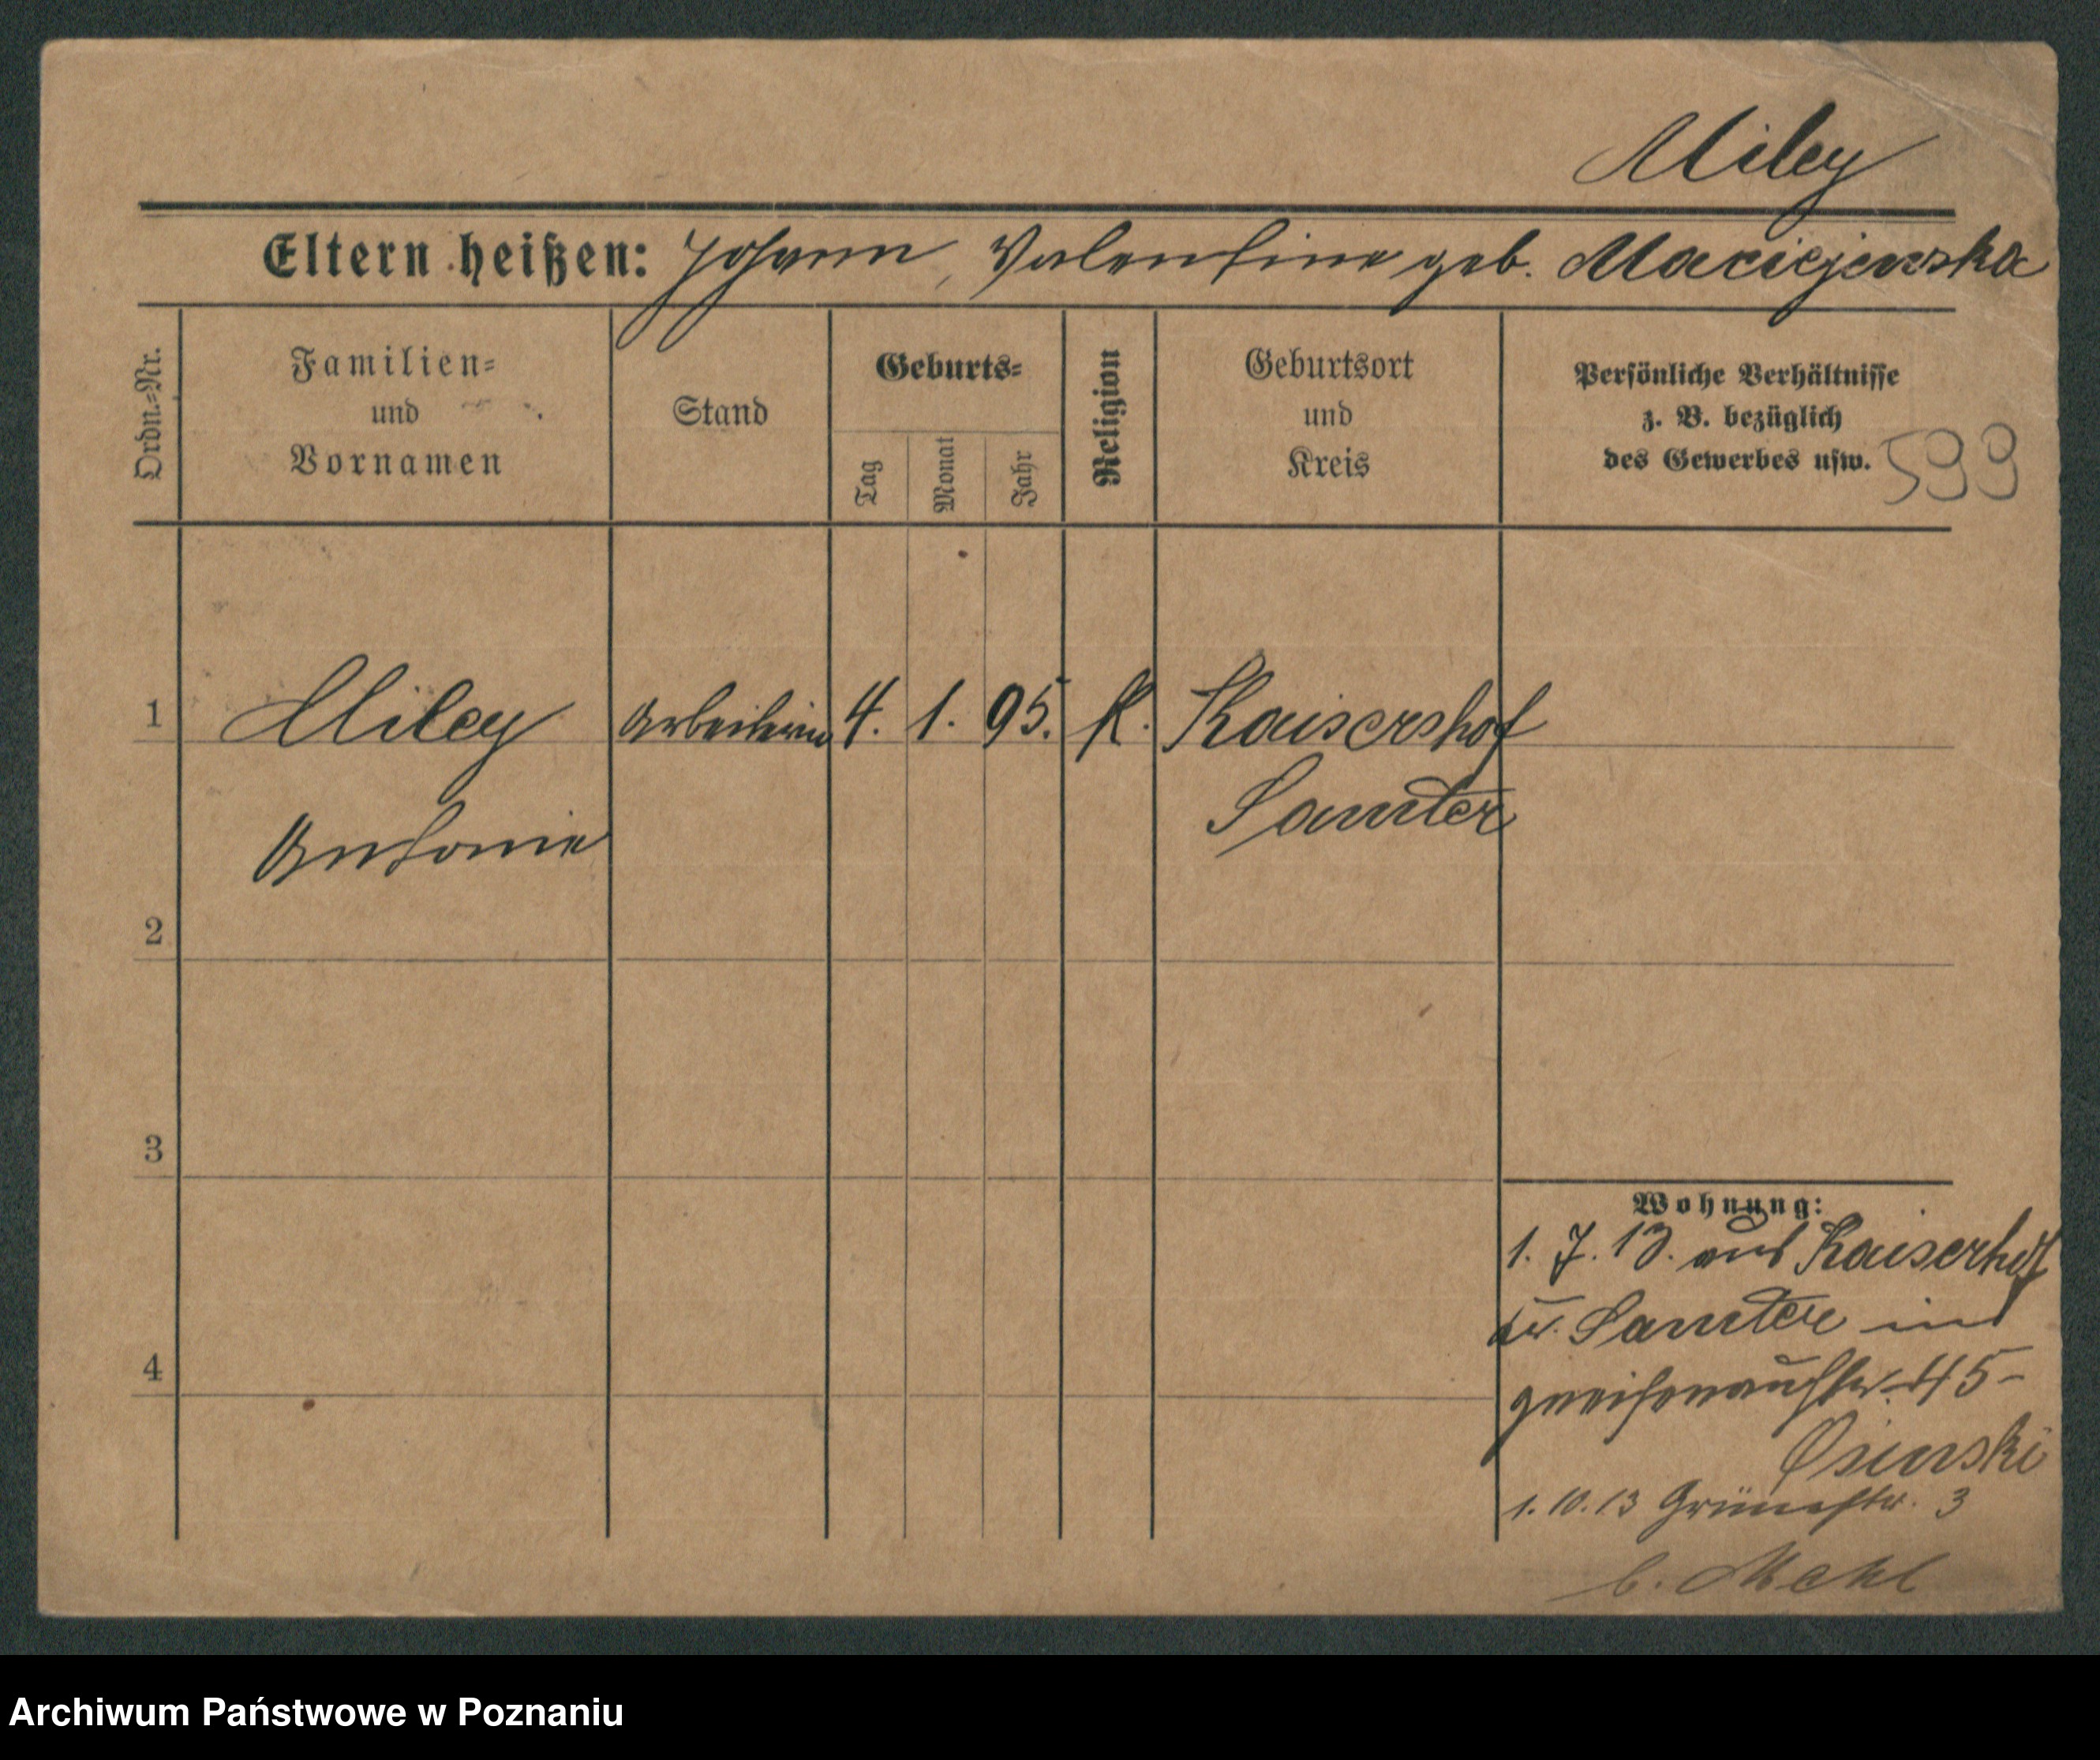 Miley
Eltern heißen: Johann, Valentine geb. Maciejewska
Ordn.-Nr.
Familien-
und
Vornamen
Stand
Geburts-
Tag
Monat
Jahr
Religion
Geburtsort
und
Kreis
Persönliche Verhältnisse
z. B. bezüglich
des Gewerbes usw.
599
1 Miley Arbeiterin 4. 1. 95. K. Kaisershof
Samter
Antonie
2
3
4
Wohnung:
1. 7. 13. aus Kaiserhof
Kr. Samter
45-
Osinski
1. 10. 13 Grünestr. 3
b. Mehl
Archiwum Państwowe w Poznaniu